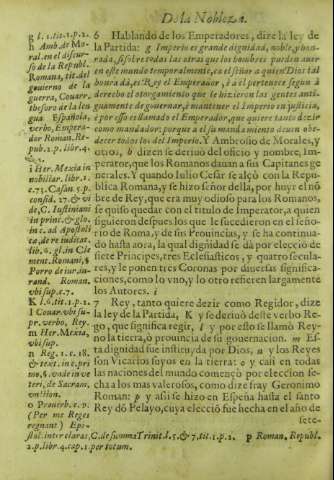 De la Nobleza.
g l. 1. tit. 1. p. 2.
h Amb. de Moral. en el discurso de la Republ. Romana, tit. del
gouierno de la guerra, Couarr.
thesoro de la lengua Española,
verbo, Emperador Roman. Republ. 2. p. libr. 4.
i Her. Mexia in nobiliar. libr. 1.
in princ. & glo.
Porro de iur.
Roman.
vbi sup. c. 7.
K l. 6. tit. 1. p. 2.
l Couar. vbi supr. verbo, Rey.
m Her. Mexia, vbi sup.
n Reg. 1. c. 18.
o Prouerb. c. 9.
(Per me Reges regnant)
6 Hablando de los Emperadores, dize la ley de
la Partida: g Imperio es grande dignidad, noble, y honrada, sobre todas las otras que los hombres pueden auer
en este mundo temporalmente, ca el señor a quien Dios tal
honra dá, es Rey el Emperador, è a èl pertenece segun
derecho el otorgamiento que le hizieron las gentes antiguamente de gouernar, è mantener el Imperio en justicia,
è por esso es llamado el Emperador, que quiere tanto dezir
como mandador, porque a el su mandamiento deuen obedecer todos los del Imperio. Y Ambrosio de Morales, y
otros, h dizen se deriuò del oficio y nombre, Imperator, que los Romanos dauan a sus Capitanes generales. Y quando Iulio Cesar se alçò con la Republica Romana, y se hizo señor della, por huyr el nõbre de Rey, que era muy odioso para los Romanos,
se quiso quedar con el titulo de Imperator, a quien
siguieron despues los que le sucedieron en el señorio de Roma, y de sus Prouincias, y se ha continuado hasta aora, la qual dignidad se dà por eleccion de
siete Principes, tres Eclesiasticos, y quatro seculares, y le ponen tres Coronas por diuersas significaciones, como lo vno, y lo otro refieren largamente
los Autores. i
7 Rey, tanto quiere dezir como Regidor, dize
la ley de la Partida, K y se deriuò deste verbo Rego, que significa regir, l y por esto se llamò Reyno la tierra, ò prouincia de su gouernacion. m Esta dignidad fue instituyda por Dios, n y los Reyes
son Vicarios suyos en la tierra: o y casi en todas
las naciones del mundo començò por eleccion fecha a los mas valerosos, como dize fray Geronimo
Roman: p y assi se hizo en España hasta el santo
Rey dõ Pelayo, cuya eleccion fue hecha en el año de
sete-
C. de summa Trinit. l. 5. & 7. tit. 1. p. 2. p Roman. Republ.
2. p. libr. 4. cap. 1. per totum.